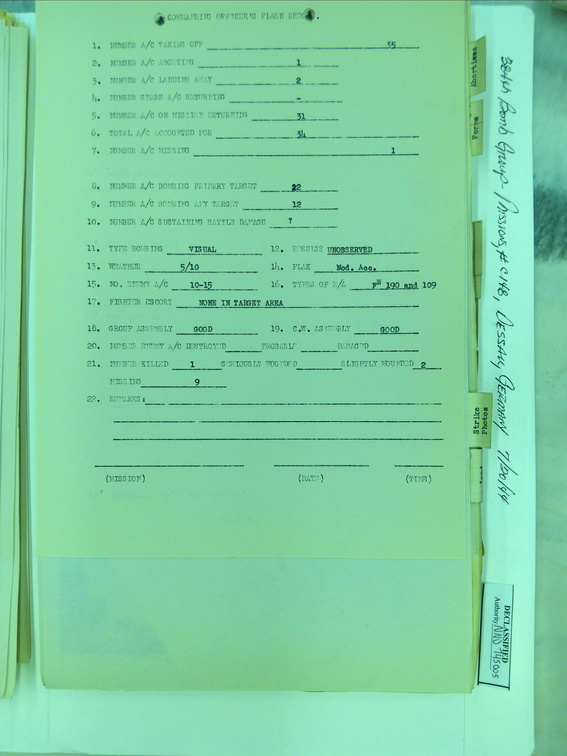 COMMANDING OFFICER'S FLASH REPORT.
1. NUMBER A/C TAKING OFF 35
2. NUMBER A/C ABORTING 1
3. NUMBER A/C LANDING AWAY 2
4. NUMBER SPARE A/C RETURNING -
5. NUMBER A/C ON MISSION RETURNING 31
6. TOTAL A/C ACCOUNTED FOR 34
7. NUMBER A/C MISSING 1
8. NUMBER A/C BOMBING PRIMARY TARGET 22
9. NUMBER A/C BOMBING ANY TARGET 12
10. NUMBER A/C SUSTAINING BATTLE DAMAGE ?
11. TYPE BOMBING VISUAL 12. RESULTS UNOBSERVED
13. WEATHER 5/10 14. FLAK Mod. Acc.
15. NO. ENEMY A/C 10-15 16. TYPES OF E/A FW 190 and 109
17. FIGHTER ESCORT NONE IN TARGET AREA
18. GROUP ASSEMBLY GOOD 19. C.W. ASSEMBLY GOOD
20. NUMBER ENEMY A/C DESTROYED PROBABLE DAMAGED
21. NUMBER KILLED 1 SERIOUSLY WOUNDED SLIGHTLY WOUNDED 2
MISSING 9
22. REMARKS:
(MISSION) (DATE) (TIME)
Abortions
Form
Strike Photos
Bomb Group - Missions # C148, DESSAU, GERMANY 7/20/44
DECLASSIFIED
Authority NND 745005